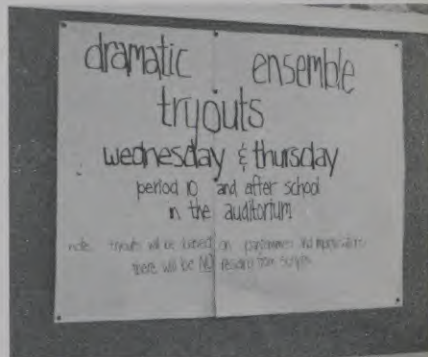 dramatic ensemble
tryouts
wednesday & thursday
period 10 and after school
in the auditorium
note: tryouts will be based on pantomimes and improvisations
there will be NO reading from scripts